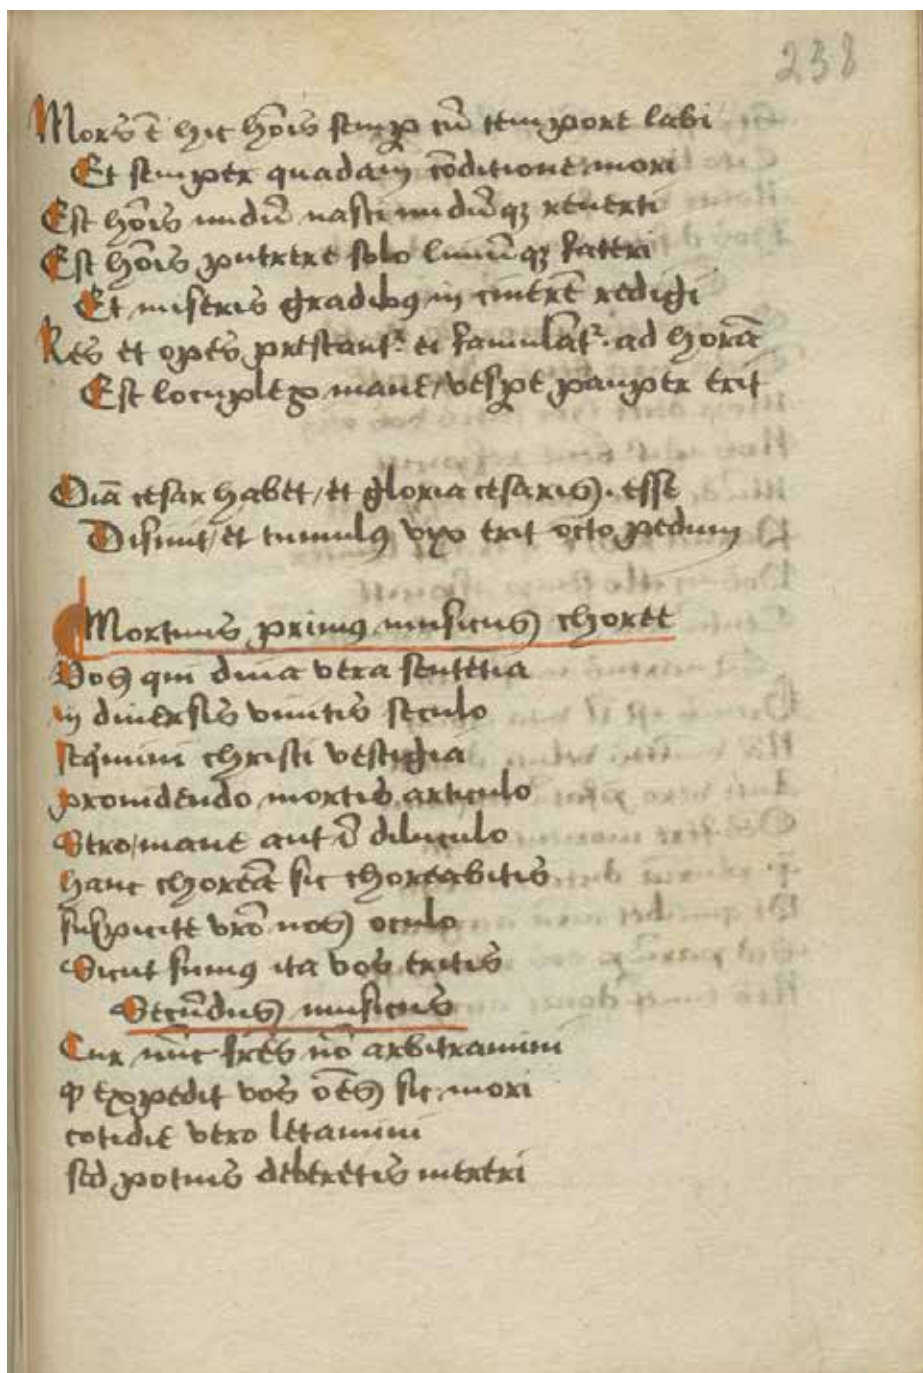 238
Mors ē hic hōīs semꝑ cū tempore labi
Et semper quadam cōditione mori
Est hōīs nudū nasci nudūqꝫ reuerti
Est hōīs putrere solo limūqꝫ fateri
Et miseris gradibꝰ in cinerē redigi
Res et opes prestantᷣ ei famulātᷣ ad horā
Est locuples mane / vesꝑe pauper erit
Oīā cesar habet / et gloria cesaris esse
Disiūt / et tumulꝰ vix erit octo pedum
Mortuus primꝰ musicus choree
Vos qui diuīa vera sentētia
in diuersis viuitis seculo
seqͥmini christi vestigia
prouidendo mortis articulo
Sero / mane aut ī diluculo
hanc choreā sic choreabitis
suspicite vrō nos oculo
Sicut sumꝰ ita vos eritis
Secūdus musicus
Cur nūc frēs nō arbitramini
ꝙ expedit vos oēs sic mori
cotidie vero letamini
sed potius deberetis mereri